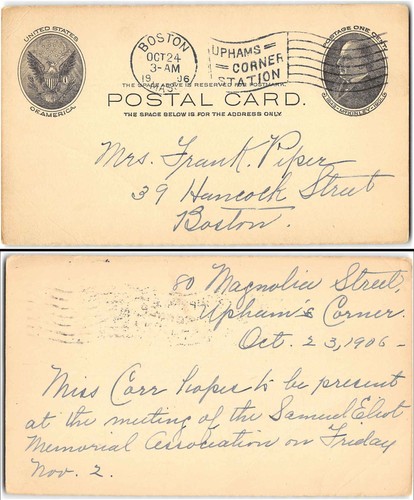 UNITED STATES
OF AMERICA.
BOSTON
OCT 24
3-AM
1906
MASS.
UPHAMS
CORNER
STATION
POSTAGE ONE CENT
1843-McKINLEY-1901
THE SPACE ABOVE IS RESERVED FOR POSTMARK.
POSTAL CARD.
THE SPACE BELOW IS FOR THE ADDRESS ONLY.
Mrs. Frank. Piper
39 Hancock Street
Boston.
80 Magnolia Street,
Upham's Corner.
Oct. 23, 1906-
Miss Carr hopes to be present
at the meeting of the Samuel Eliot
Memorial Association on Friday
Nov. 2.